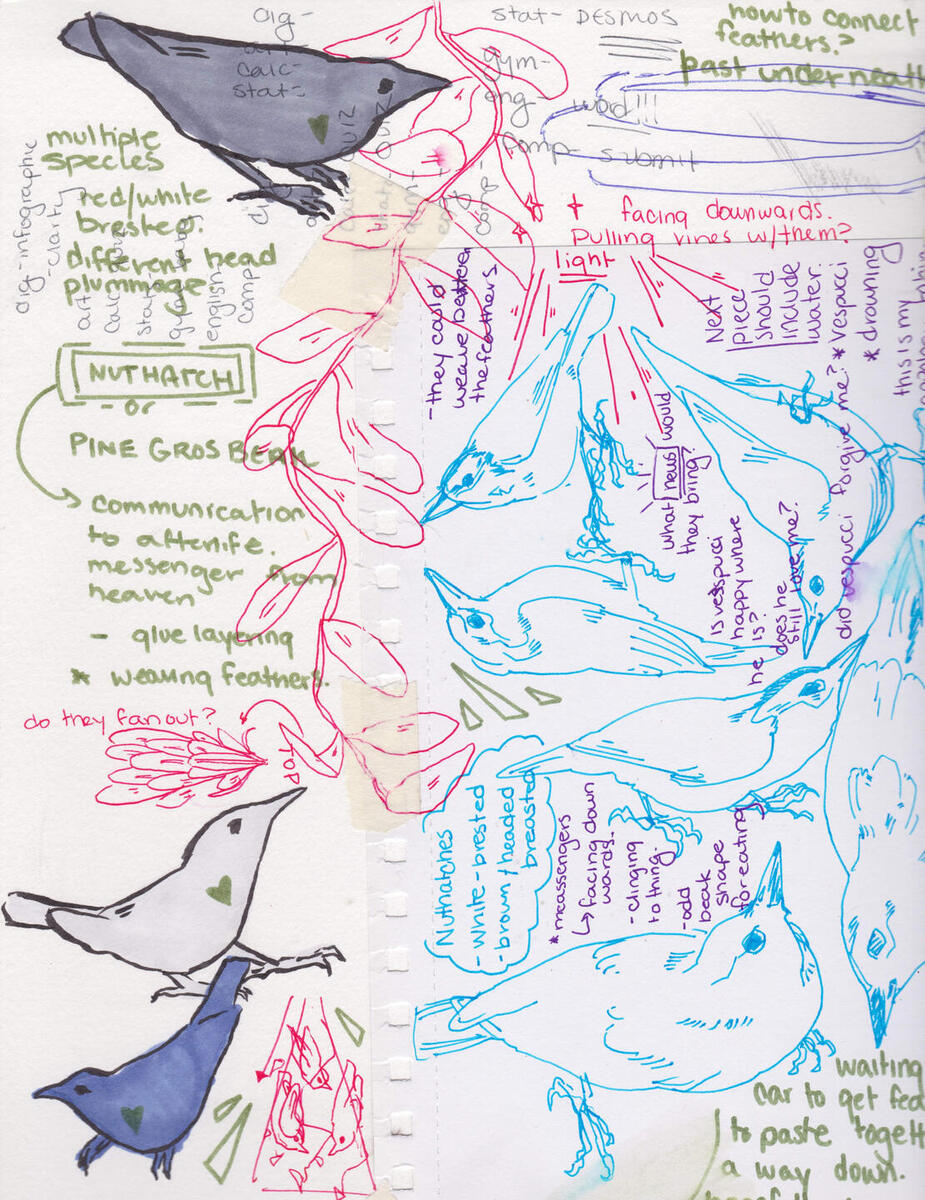 dig-
art-
calc-
stat-
stat- DESMOS
gym-
eng- word!!!
comp- submit
how to connect
feathers?
past underneath
multiple
species
red/white
brested.
different head
plummage
dig-infographic
-clarity
art
calc
stat
english
comp
quiz
quiz
comp-
facing downwards.
Pulling vines w/them?
light
-they could
weave between
the feathers.
Next
piece
should
include
water.
* vespucci
* drowning
this is my
NUTHATCH
- or -
PINE GROSBEAK
communication
to afterlife.
messenger from
heaven
- glue layering
* weaving feathers.
what news would
they bring?
is vespucci
happy where
he is?
does he
still love me?
did vespucci forgive me?
do they fan out?
TOP
Nuthatches
-white-brested
-brown/headed
breasted
*meassengers
↳ facing down
wards.
-clinging
to thing.
-odd
beak
shape
for eating
waiting
car to get fed
to paste toget
a way down.